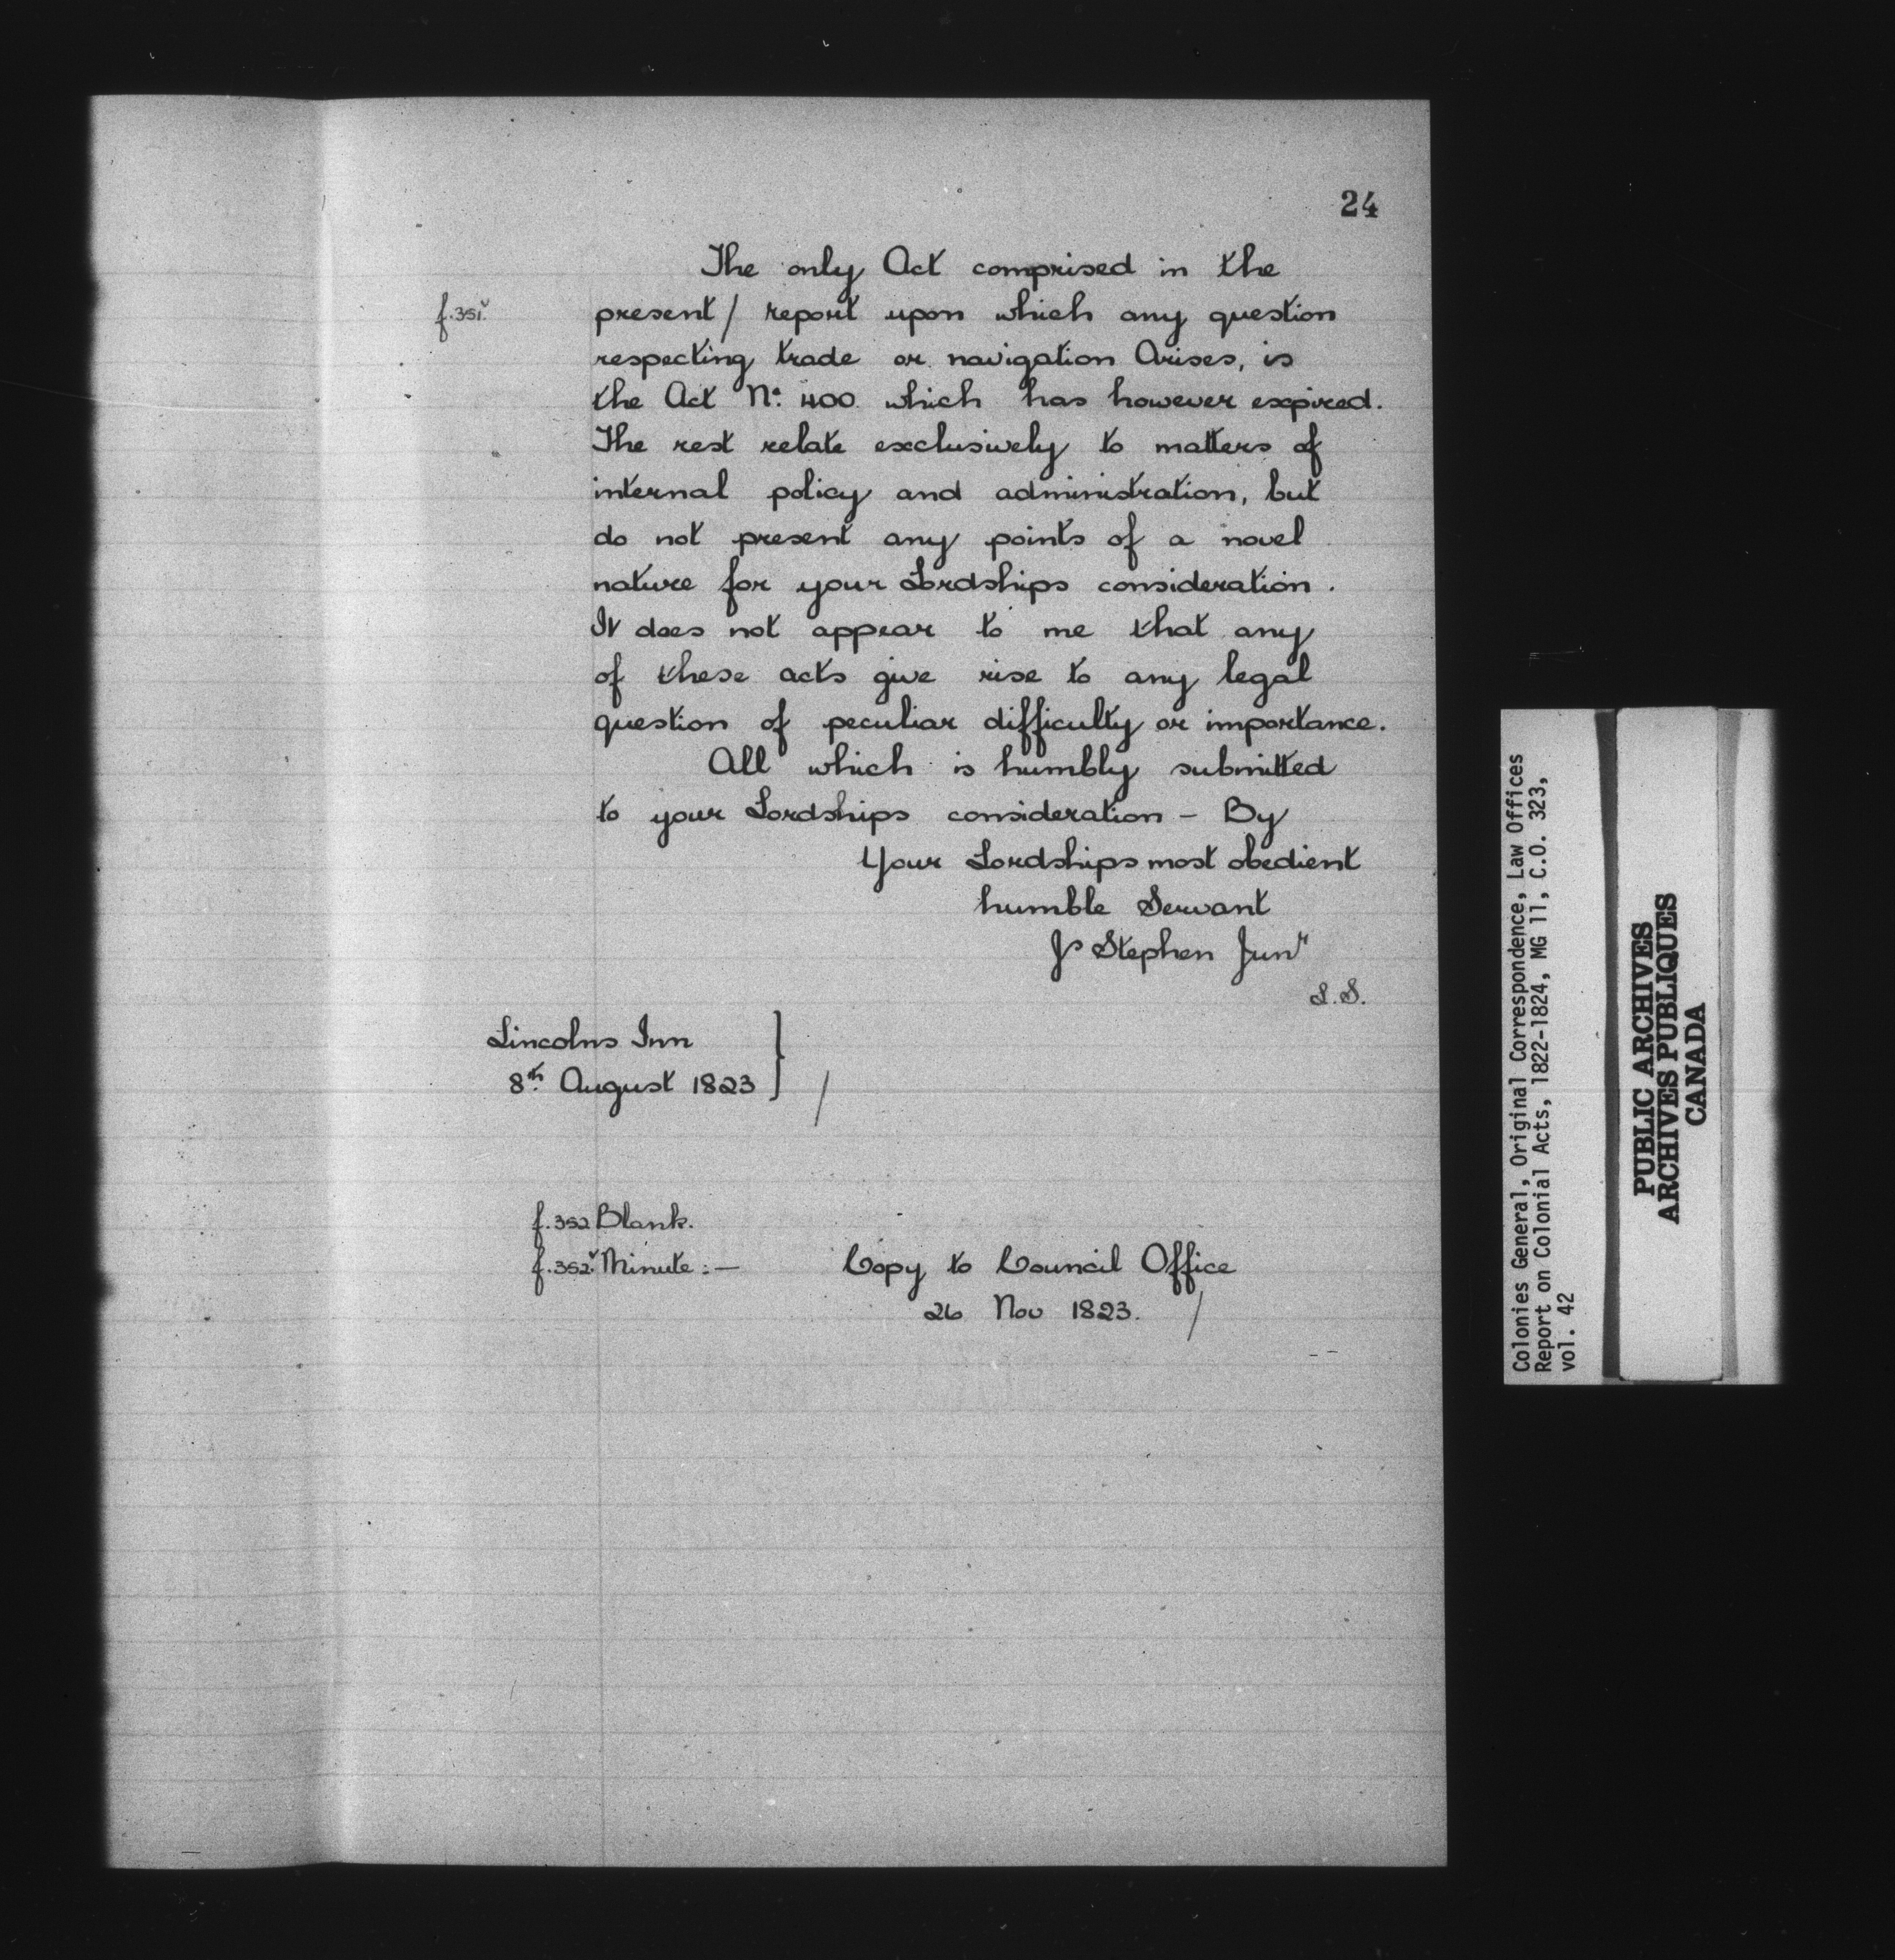 24
The only Act comprised in the
f.351v. present/ report upon which any question
respecting trade or navigation Arises, is
the Act No. 400 which has however expired.
The rest relate exclusively to matters of
internal policy and administration, but
do not present any points of a novel
nature for your Lordships consideration.
It does not appear to me that any
of these acts give rise to any legal
question of peculiar difficulty or importance.
All which is humbly submitted
to your Lordships consideration - By
Your Lordships most obedient
humble Servant
Js Stephen Junr
L.S.
Lincolns Inn
8th August 1823 } /
f.352 Blank.
f.352v. Minute:— Copy to Council Office
26 Nov 1823. /
Colonies General, Original Correspondence, Law Offices
Report on Colonial Acts, 1822-1824, MG 11, C.O. 323,
vol. 42
PUBLIC ARCHIVES
ARCHIVES PUBLIQUES
CANADA